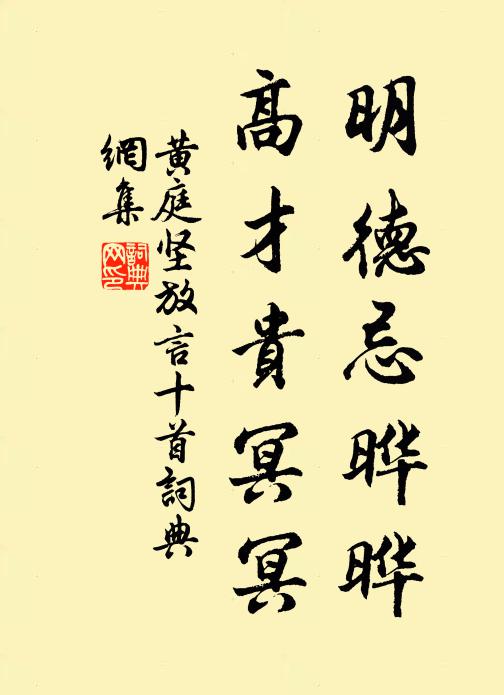 明德忌晔晔
高才貴冥冥
黄庭坚放言十首詞典
網集
詞典
网印